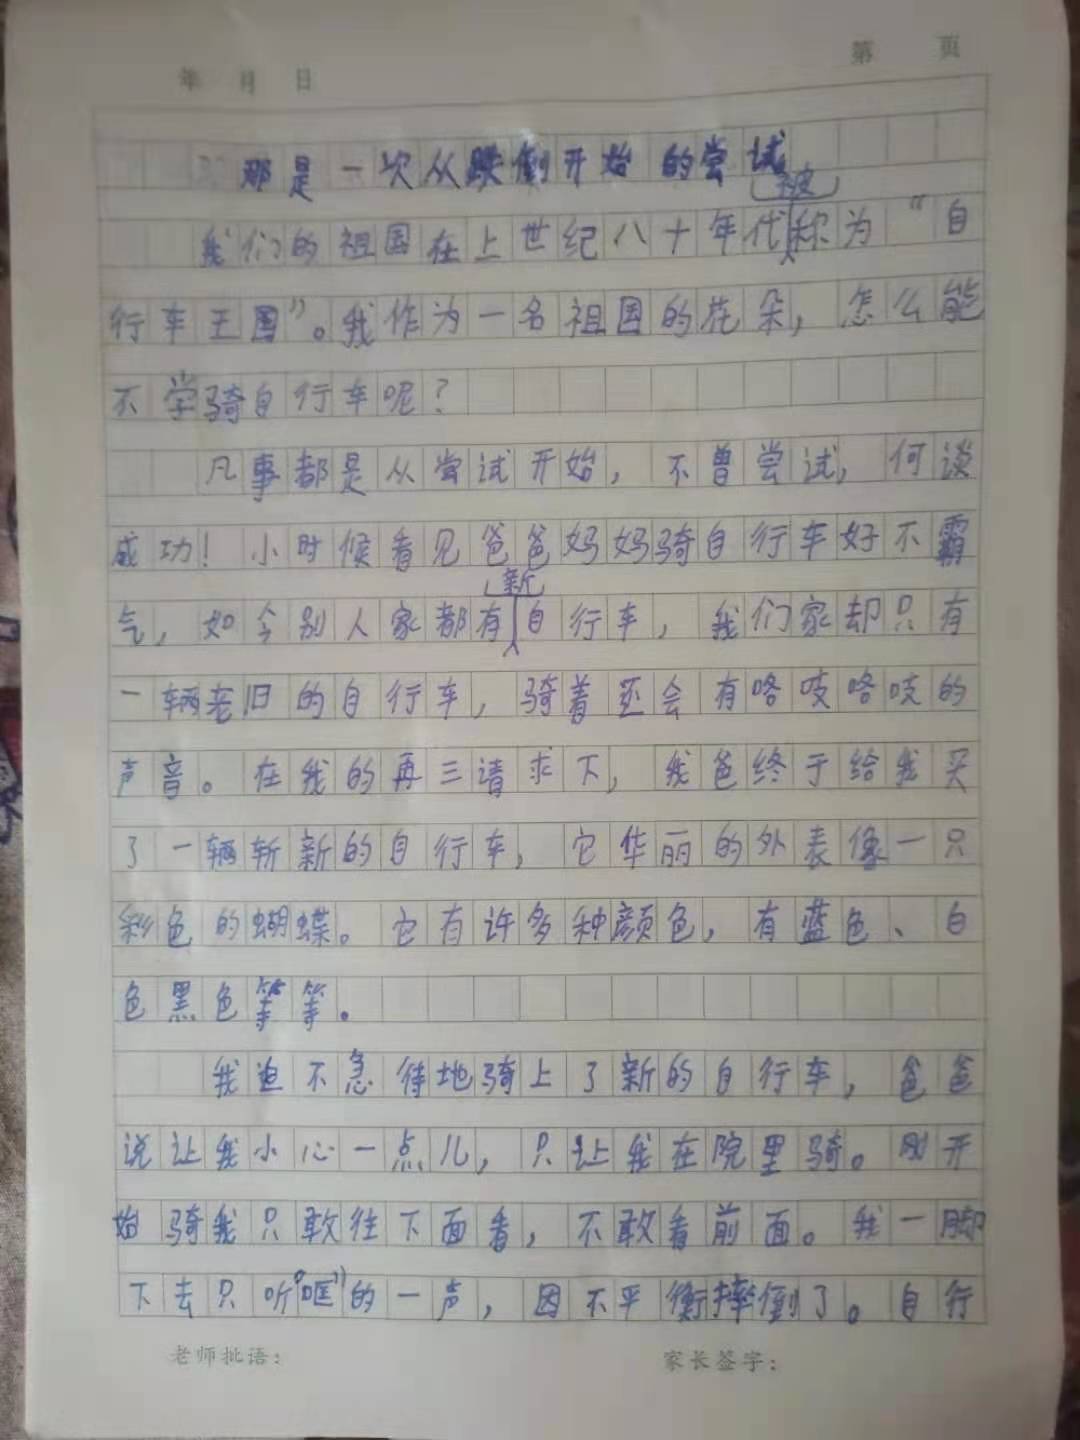 年 月 日
第 页
那是一次从跌倒开始的尝试
我们的祖国在上世纪八十年代被称为“自
行车王国”。我作为一名祖国的花朵，怎么能
不学骑自行车呢？
凡事都是从尝试开始，不曾尝试，何谈
成功！小时候看见爸爸妈妈骑自行车好不霸
气，如今别人家都有新自行车，我们家却只有
一辆老旧的自行车，骑着还会有咯吱咯吱的
声音。在我的再三请求下，我爸终于给我买
了一辆斩新的自行车，它华丽的外表像一只
彩色的蝴蝶。它有许多种颜色，有蓝色、白
色黑色等等。
我迫不急待地骑上了新的自行车，爸爸
说让我小心一点儿，只让我在院里骑。刚开
始骑我只敢往下面看，不敢看前面。我一脚
下去只听“哐”的一声，因不平衡摔倒了。自行
老师批语：
家长签字：